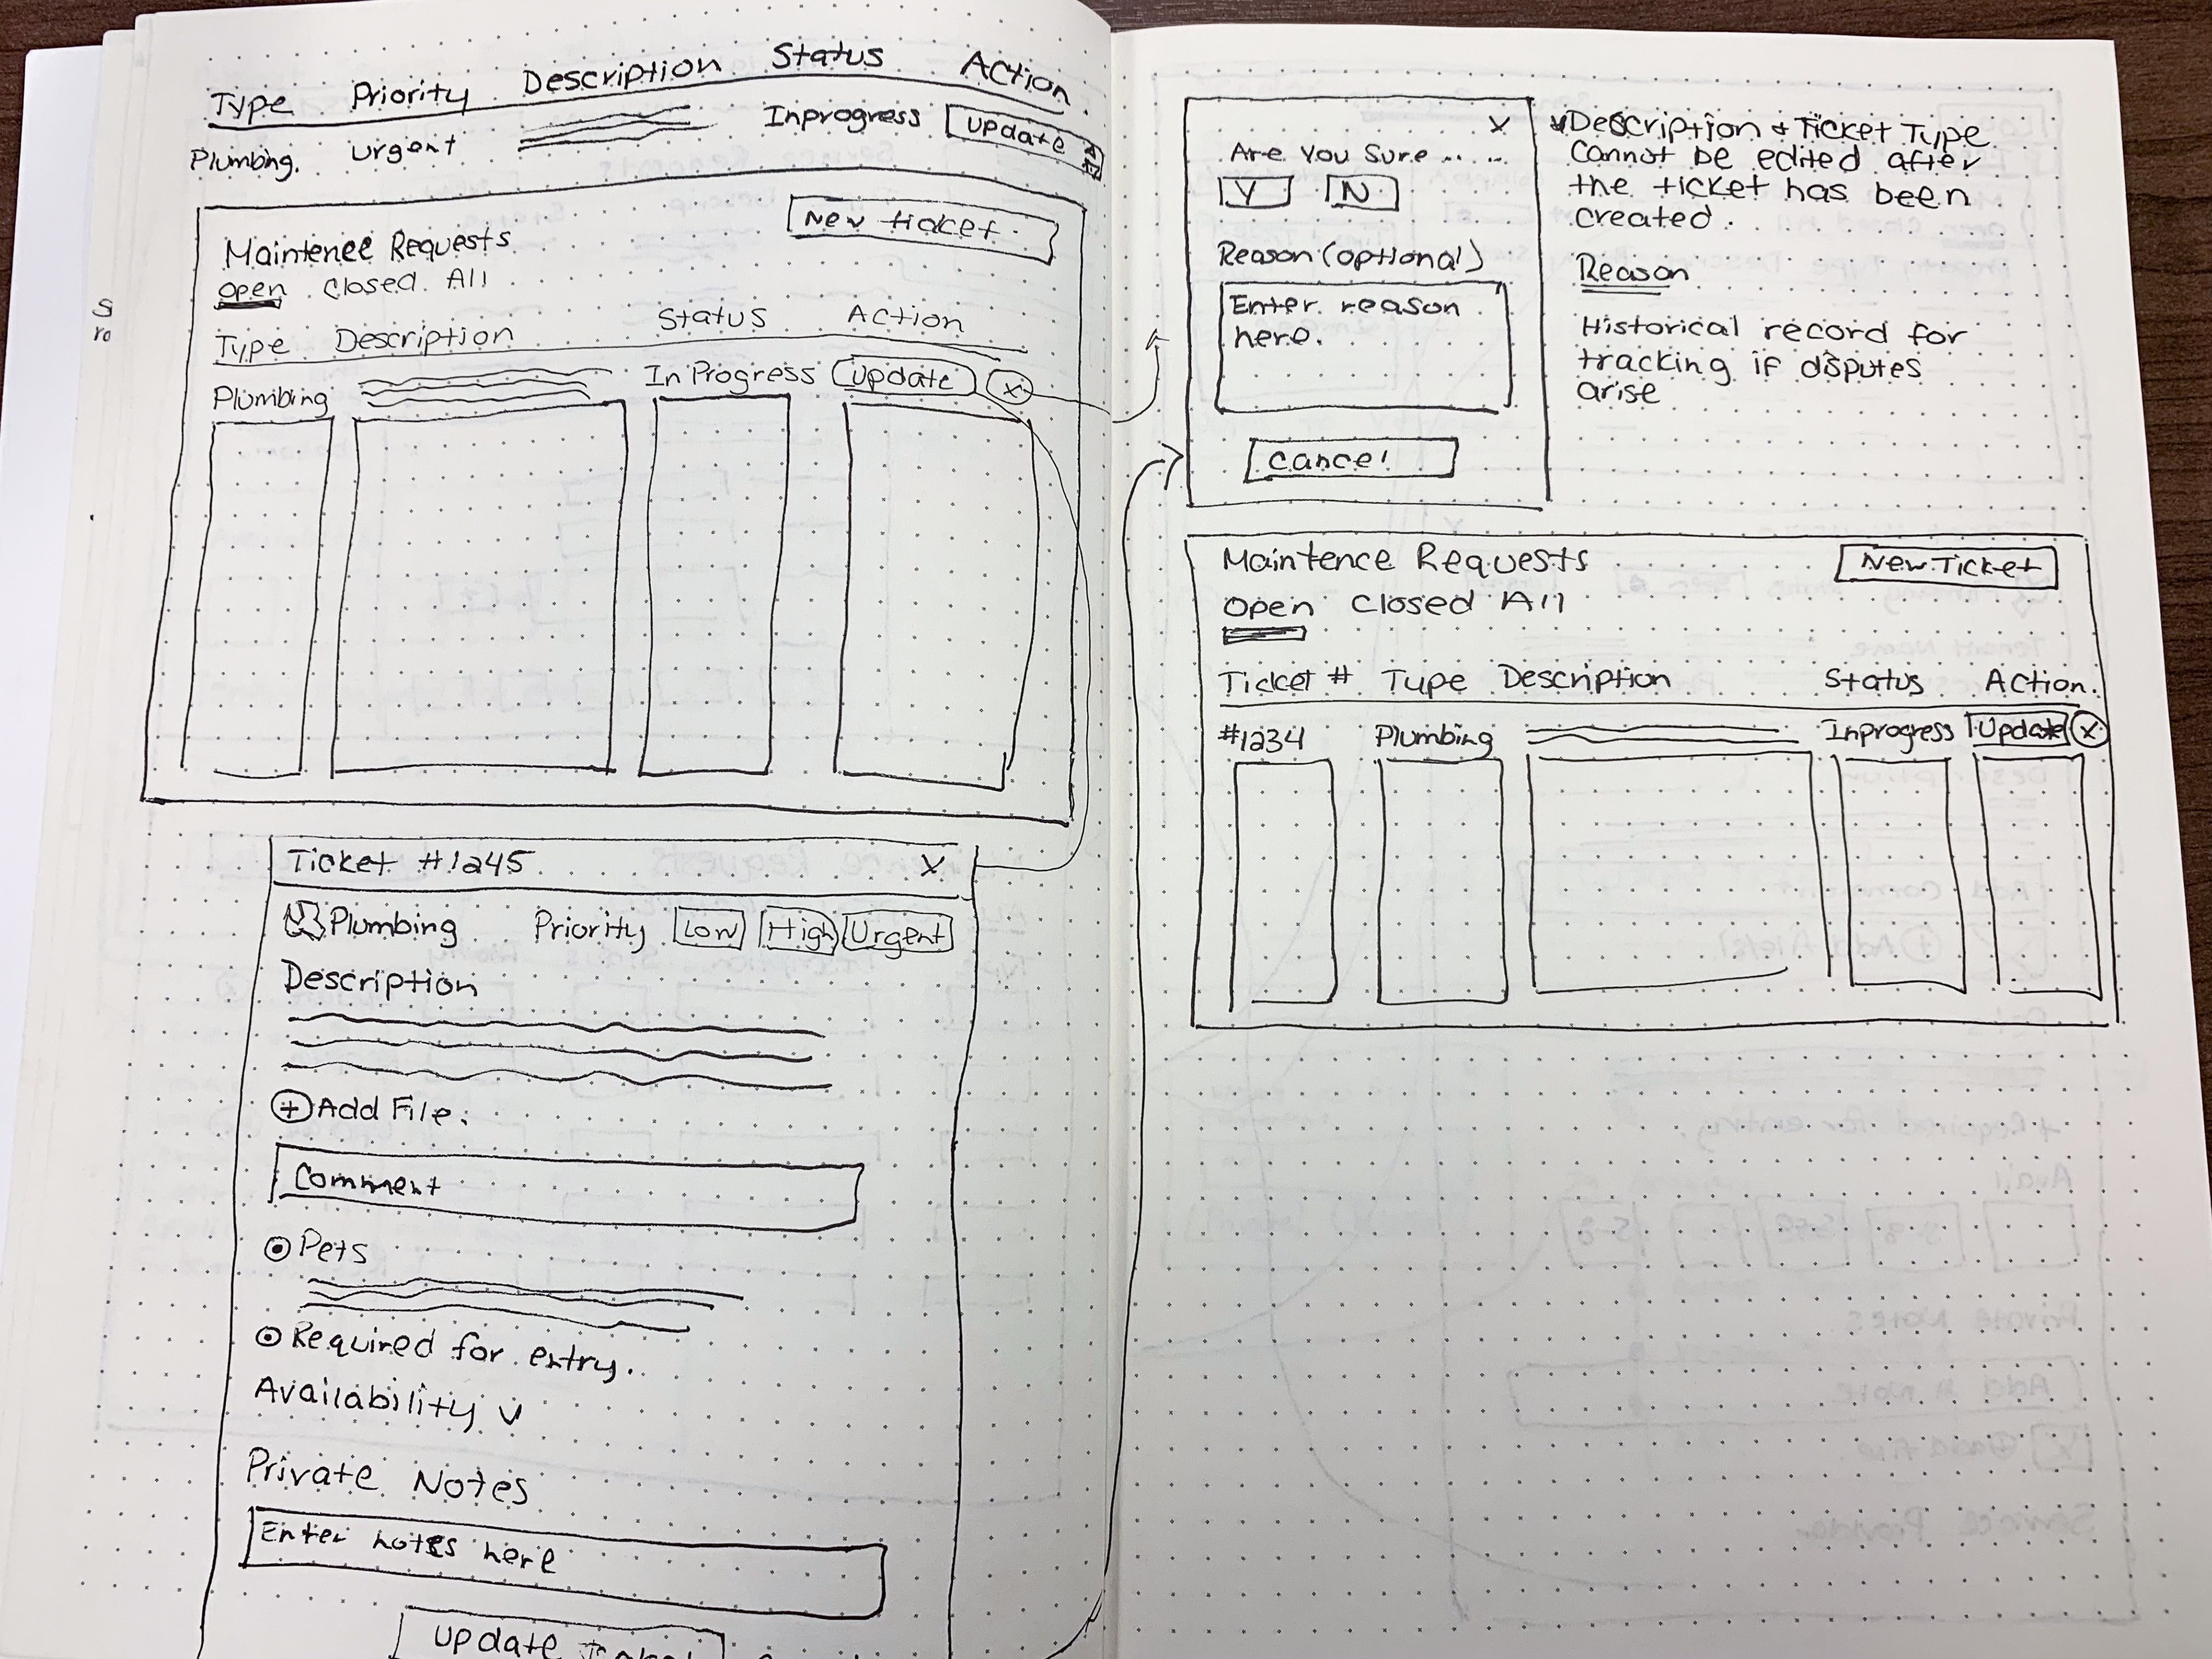 Type Priority Description Status Action
Plumbing. Urgent Inprogress Update
Maintence Requests New ticket
Open Closed All
Type Description Status Action
Plumbing In Progress Update X
Ticket #1245 X
Plumbing Priority Low High Urgent
Description
+ Add File.
Comment
Pets
Required for entry.
Availability
Private Notes
Enter notes here
Update
X
Are You Sure .. ...
Y N
Reason (optional)
Enter reason
here.
Cancel
Description + Ticket Type
Cannot be edited after
the ticket has been
created.
Reason
Historical record for
tracking if disputes
arise
Maintence Requests New Ticket
Open Closed All
Ticket # Type Description Status Action.
#1234 Plumbing Inprogress Update X